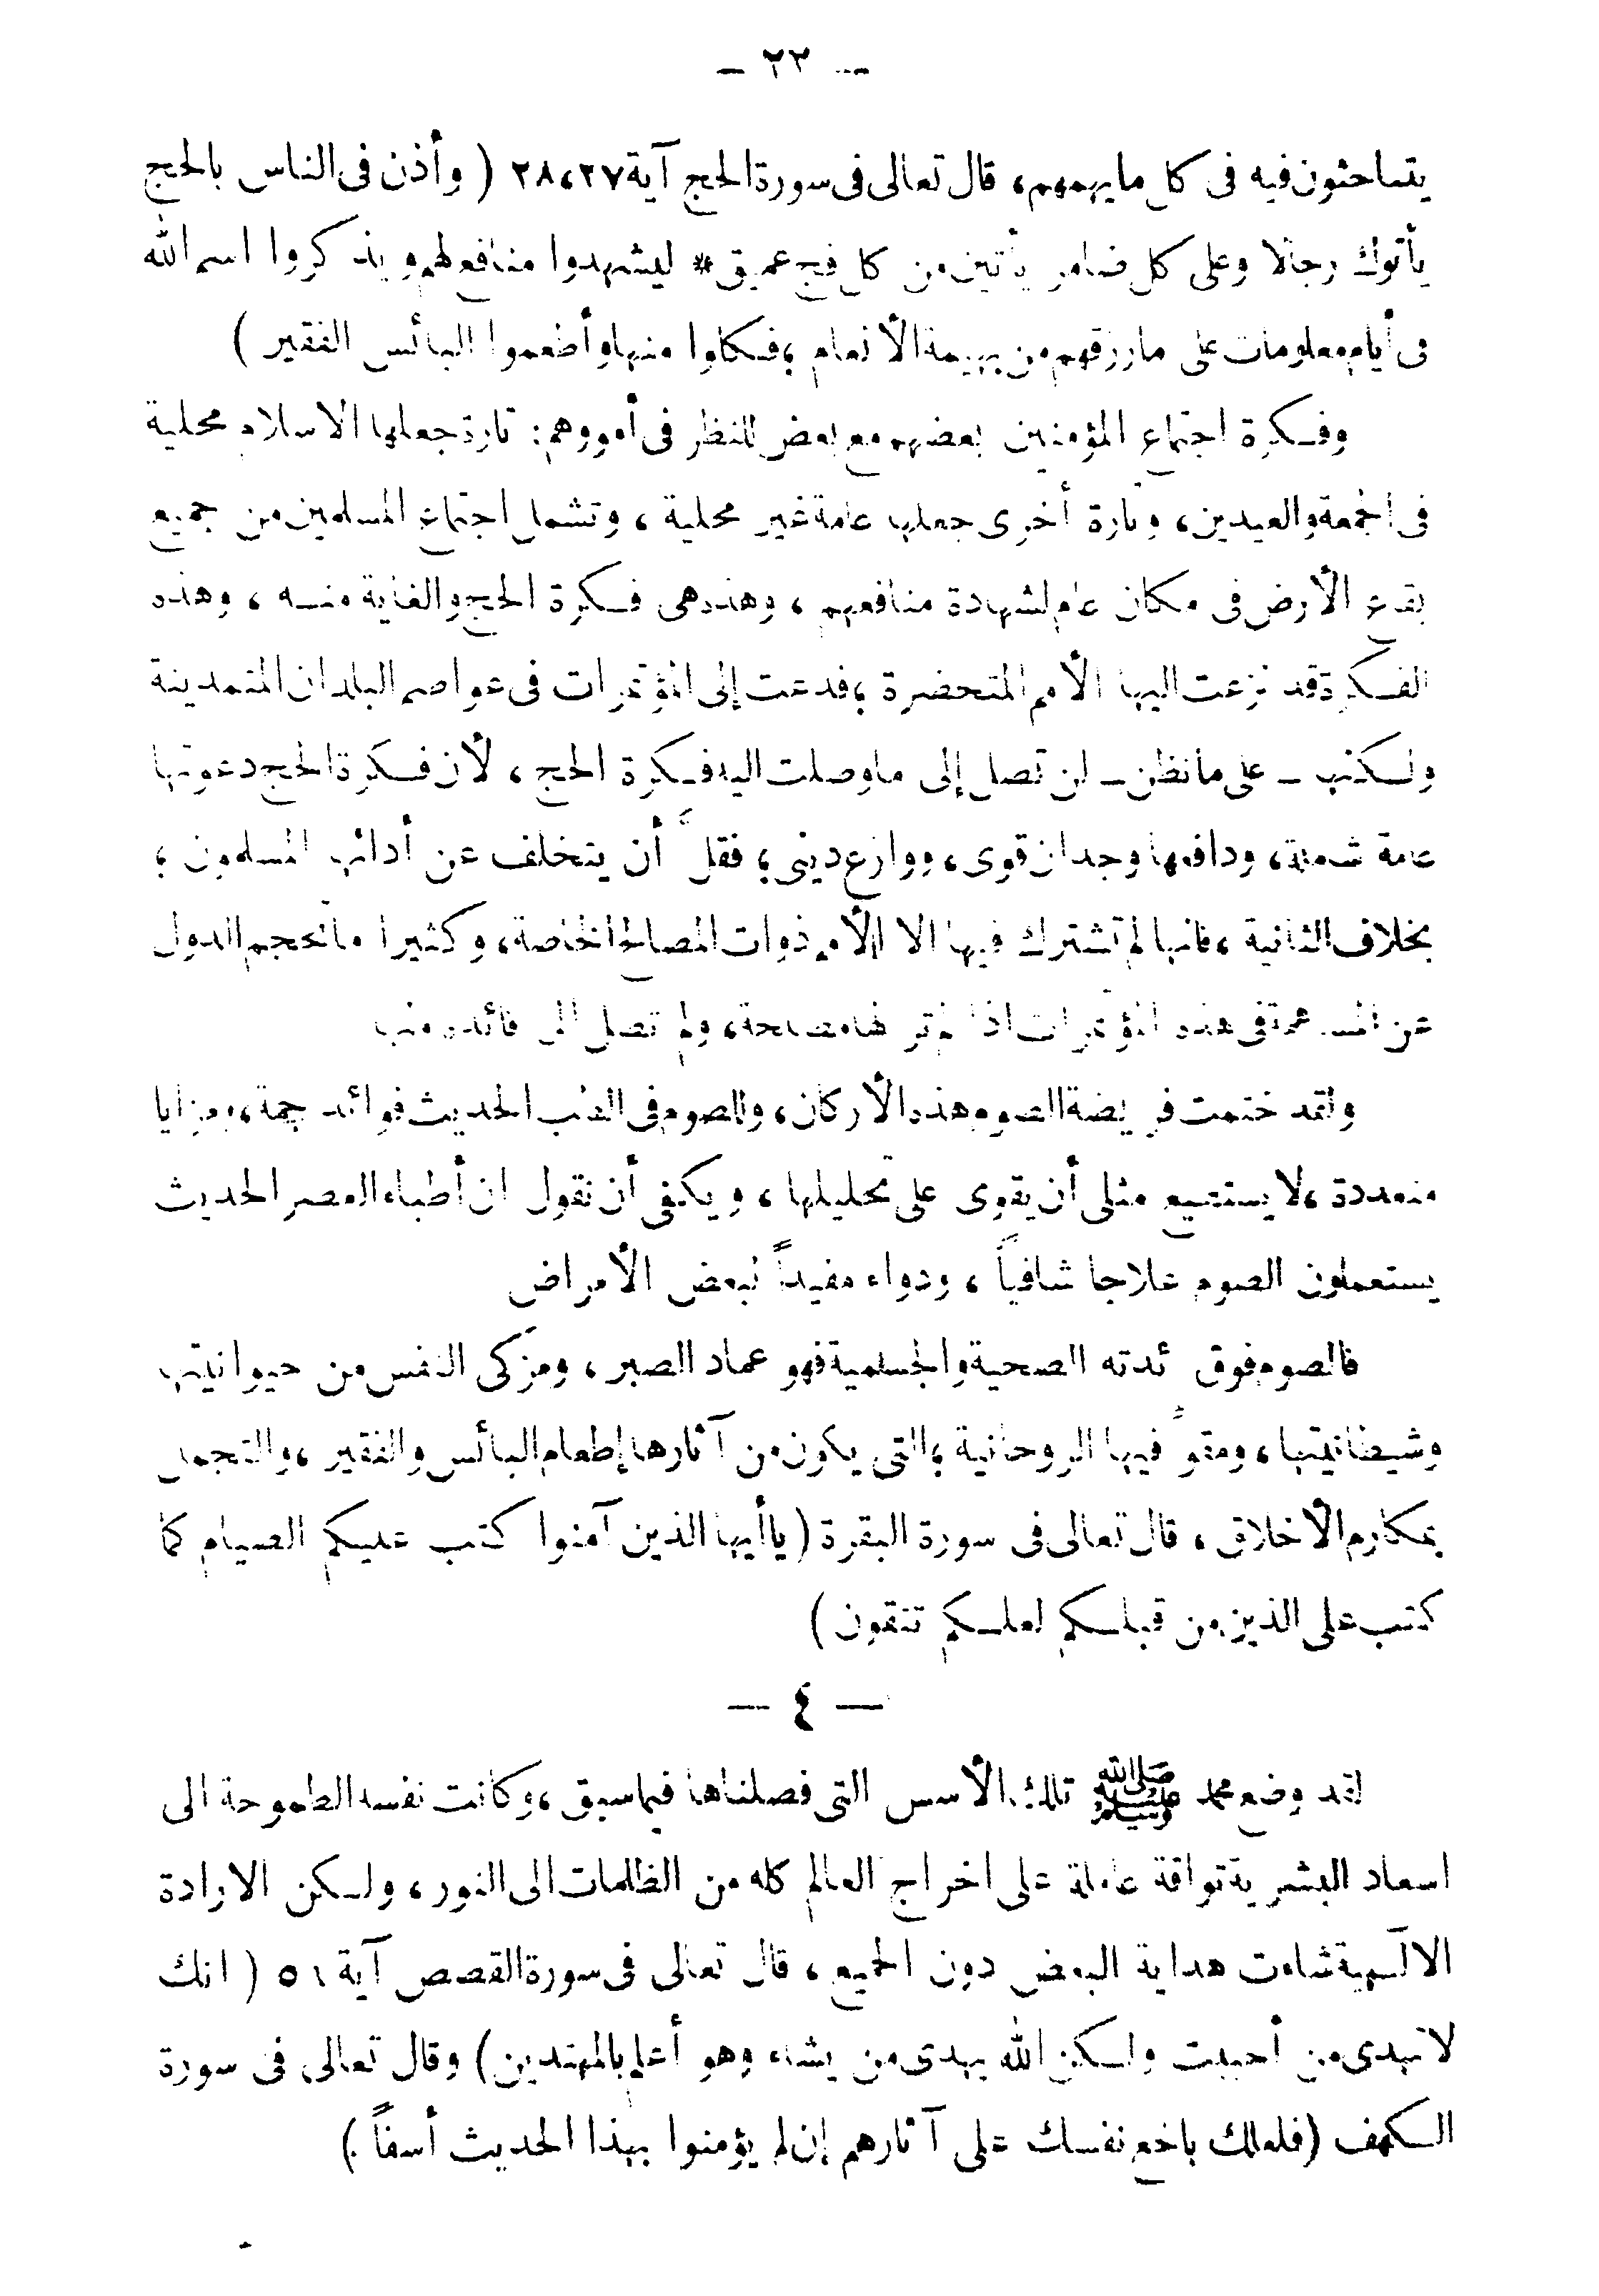 — ٢٣ —
يتباحثون فيه فى كل ما يهمهم، قال تعالى فى سورة الحج آية ٢٨،٢٧ ( وأذن فى الناس بالحج
يأتوك رجالا وعلى كل ضامر يأتين من كل فج عميق * ليشهدوا منافع لهم ويذكروا اسم الله
فى أيام معلومات على مارزقهم من بهيمة الأنعام ؛ فكلوا منها وأطعموا البائس الفقير )
وفكرة اجتماع المؤمنين بعضهم مع بعض للنظر فى أمورهم: تارة جعلها الاسلام محلية
فى الجمعة والعيدين، وتارة أخرى جعلها عامة غير محلية ، وتشمل اجتماع المسلمين من جميع
بقاع الأرض فى مكان عام لشهادة منافعهم ، وهذه هى فكرة الحج والغاية منه ، وهذه
الفكرة قد نزعت اليها الأمم المتحضرة ؛ فدعت إلى المؤتمرات فى عواصم البلدان المتمدينة
ولكنها – على ما نظن – لن تصل إلى ما وصلت اليه فكرة الحج ، لأن فكرة الحج دعوتها
عامة شاملة، ودافعها وجدان قوى، ووازع دينى ؛ فقلَّ أن يتخلف عن أدائها المسلمون ؛
بخلاف الثانية ، فانها لم تشترك فيها الا الأمم ذوات المصالح الخاصة، وكثيرا ما تحجم الدول
عن المساهمة فى هذه المؤتمرات اذا لم تر لها مصلحة، ولم تصل الى فائدة منها
ولقد ختمت فريضة الصوم هذه الأركان، وللصوم فى الطب الحديث فوائد جمة، ومزايا
متعددة ، لا يستطيع مثلى أن يقوى على تحليلها ، ويكفى أن نقول ان أطباء العصر الحديث
يستعملون الصوم علاجا شافياً ، ودواء مفيداً لبعض الأمراض
فالصوم فوق ئدته الصحية والجسمية فهو عماد الصبر ، ومزكى النفس من حيوانيتها
وشيطانيتها ، ومقوٍّ فيها الروحانية ؛ التى يكون من آثارها إطعام البائس والفقير ، والتجمل
بمكارم الأخلاق ، قال تعالى فى سورة البقرة ( يا أيها الذين آمنوا كتب عليكم الصيام كما
كتب على الذين من قبلكم لعلكم تتقون )
— ٤ —
لقد وضع محمد ﷺ تلك الأسس التى فصلناها فيما سبق ، وكانت نفسه الطموحة الى
اسعاد البشرية تواقة عاملة على اخراج العالم كله من الظلمات الى النور ، ولكن الارادة
الالٓهية شاءت هداية البعض دون الجميع ، قال تعالى فى سورة القصص آية ٥١ ( انك
لا تهدى من أحببت ولكن الله يهدى من يشاء وهو أعلم بالمهتدين ) وقال تعالى فى سورة
الكهف ( فلعلك باخع نفسك على آثارهم إن لم يؤمنوا بهذا الحديث أسفاً )